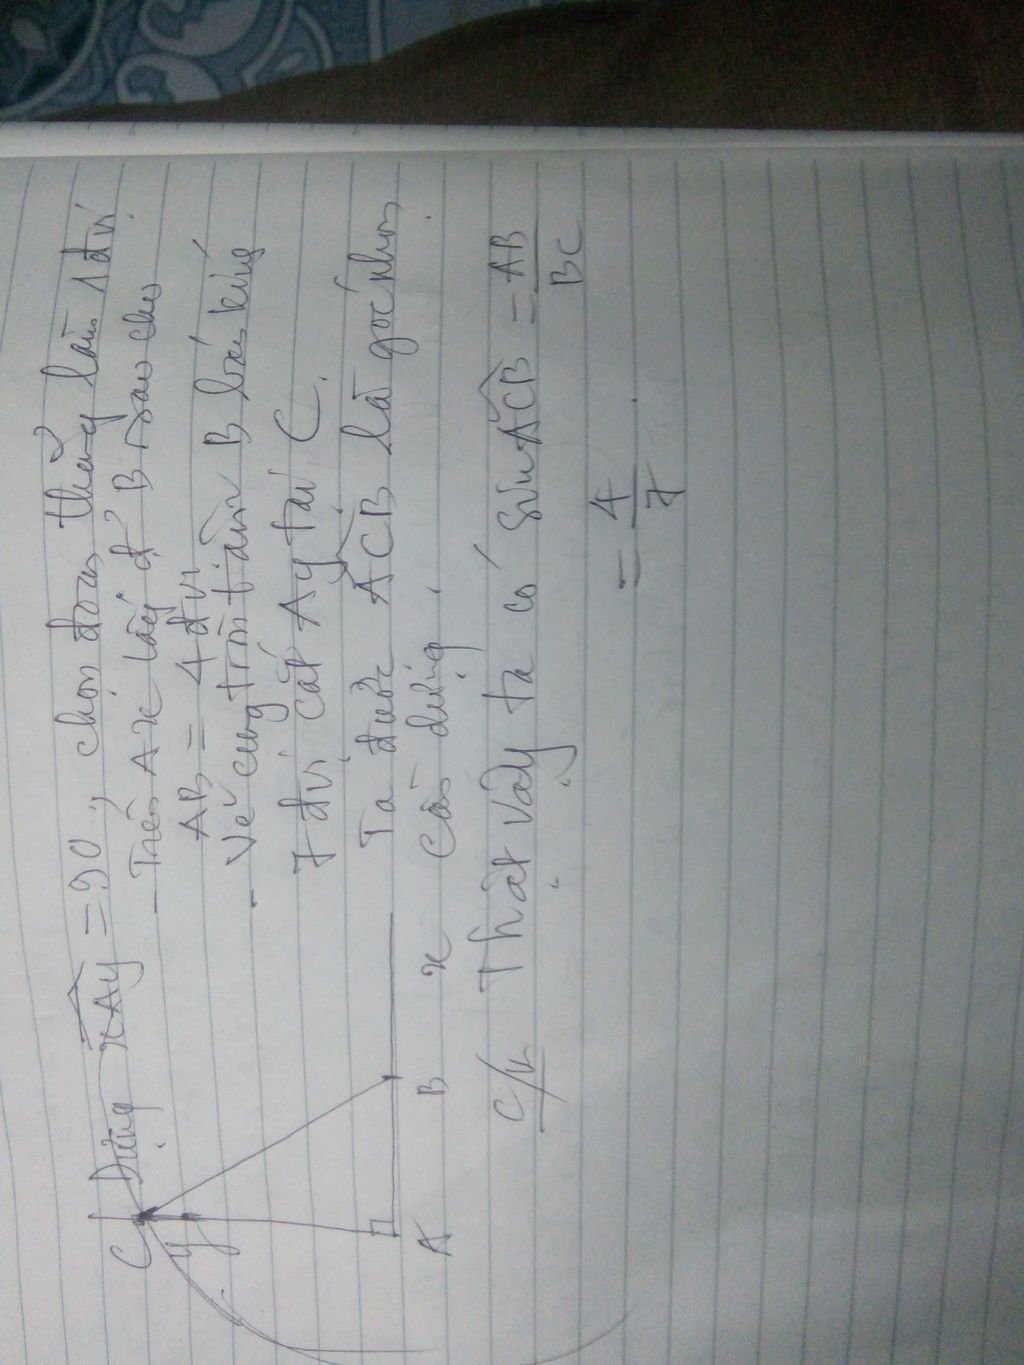 Dựng xAy = 90°, chọn đoạn thẳng làm 1 đvị.
- Trên Ax lấy đ' B sao cho
AB = 4 đvị
- Vẽ cung tròn tâm B bán kính
7 đvị cắt Ay tại C.
Ta được ACB là góc nhọn
cần dựng.
C
y
A B x
C/m Thật vậy ta có sin ACB = AB/BC
= 4/7.